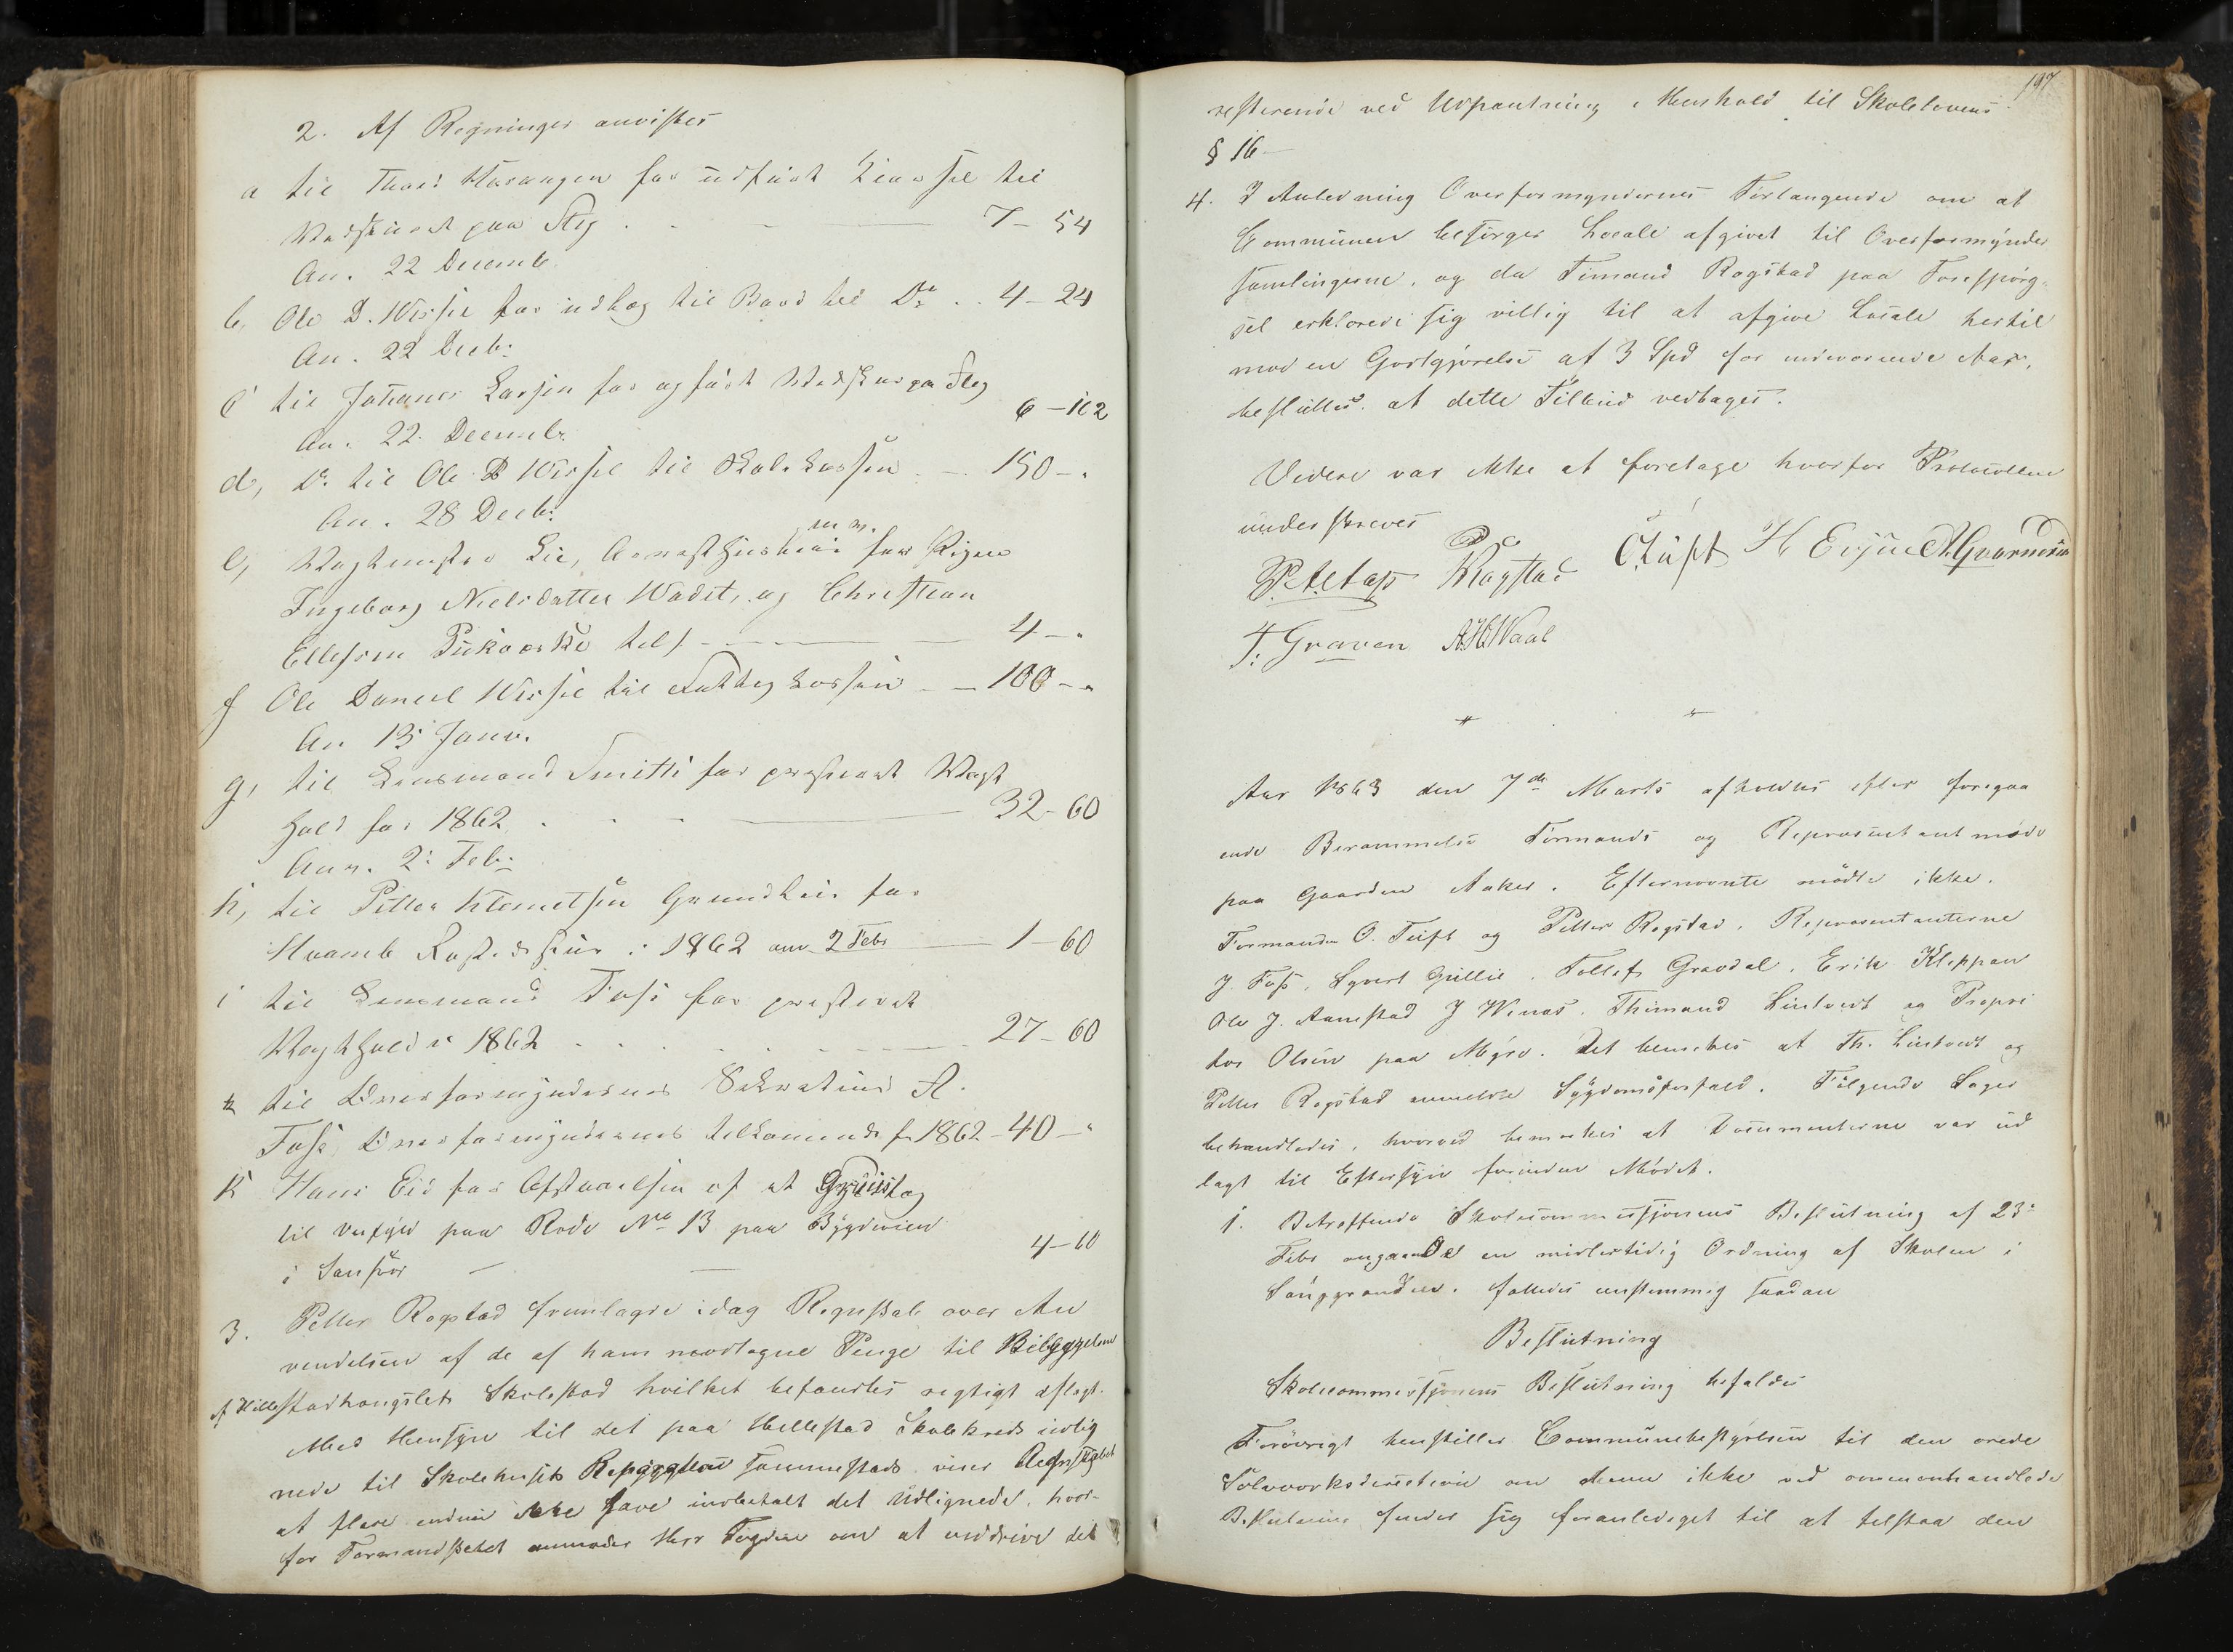 2. Af Regninger anvistes
a til Thord for udført til
paa Steg . . 7 - 54
An. 22 Decemb.
b, Ole D. Wersjø for udlæg til Baad til Do . . 4 - 24
An. 22 Decb:
c til Johannes Larsen for opført paa Steg
6 - 112
An. 22 Decembr
d, Do til Ole D Wersjø til Skolekassen . - 150 - "
An. 28 Decb:
e, Vagtmester Lie, Arresthusleie m v. for Pigen
Ingeborg Nielsdatter Wadet, og Christian
Ellefsen tils. 4 - "
f Ole Daniel Wersjø til Fattigkassen - - 100 - "
An 13 Janv.
g, til Lensmand Smith for præsteret Vagt
hold for 1862 . . . 32 - 60
Anv. 2: Feb:
h, til Petter Klemetsen Grundleie for
Hvamb i 1862 anv. 2 Febr 1 - 60
i til Lensmand Foss for præsteret
Vagthold i 1862 . . . 27 - 60
til Overformyndernes Sekretair A.
Foss, Overformyndernes tilkommende f. 1862 - 40 - "
k Hans Eid for Afstaaelsen af et Gruustag
til paa Rode No 13 paa Bygdeveien
i Sansvær 4 - 60
3. Petter Rogstad fremlagde idag Regnskab over An
vendelsen af de af ham modtagne Penge til Bebyggelsen
af Hillestadhougslets Skolestad hvilket befandtes rigtigt aflagt.
Med Hensyn til det paa Hellestad Skolekreds udlig
nede til Skolehusets sammesteds viser Regnskabet
at flere endnu ikke have indbetalt det Udlignede, hvor-
for Formandskabet anmoder Herr Fogden om at inddrive det
197
resterende ved Udpantning i Henhold til Skolelovens
§ 16 -
4. I Anledning Overformyndernes Forlangende om at
Communen besørger Locale afgivet til Overformynder
samlingerne, og da Timand Rogstad paa Forespørg-
sel erklærede sig villig til at afgive Locale hertil
mod en Godtgjørelse af 3 Spd for indeværende Aar,
besluttes at dette Tilbud vedtages.
Videre var ikke at foretage hvorfor Protocollen
underskreves
Rogstad O Tuft H Evju A. Gunnerson
T. Graven A H Waal
Aar 1863 den 7de Marts afholdtes efter foregaa
ende Berammelse Formands og Repræsentantmøde
paa Gaarden Aaker. Efternævnte mødte ikke.
Formænd O. Tuft og Petter Rogstad, Repræsentanterne
J. Foss, Syvert Gullie, Tollef Gravdal, Erik Kleppan
Ole J. Aanestad J Wenas, Thimand Lintvedt og Propri
tør Olsen paa Myre. Det bemerkes at Th. Lintvedt og
Petter Rogstad anmeldte Sygdomsforfald. Følgende Sager
behandledes, hvorved bemærkes at Documenterne var ud
lagt til Eftersyn forinden Mødet.
1. Betræffende Skolecommissjonens Beslutning af 23:
Febr angaaende en midlertidig Ordning af Skolen i
Saugrenden, fattedes enstemmig saadan
Beslutning
Skolecommissjonens Beslutning bifaldes
Forøvrigt henstiller Communebestyrelsen til den ærede
Sølvværksdirection om denne ikke ved ovenomhandlede
Beslutning finder sig foranlediget til at tilstaa den